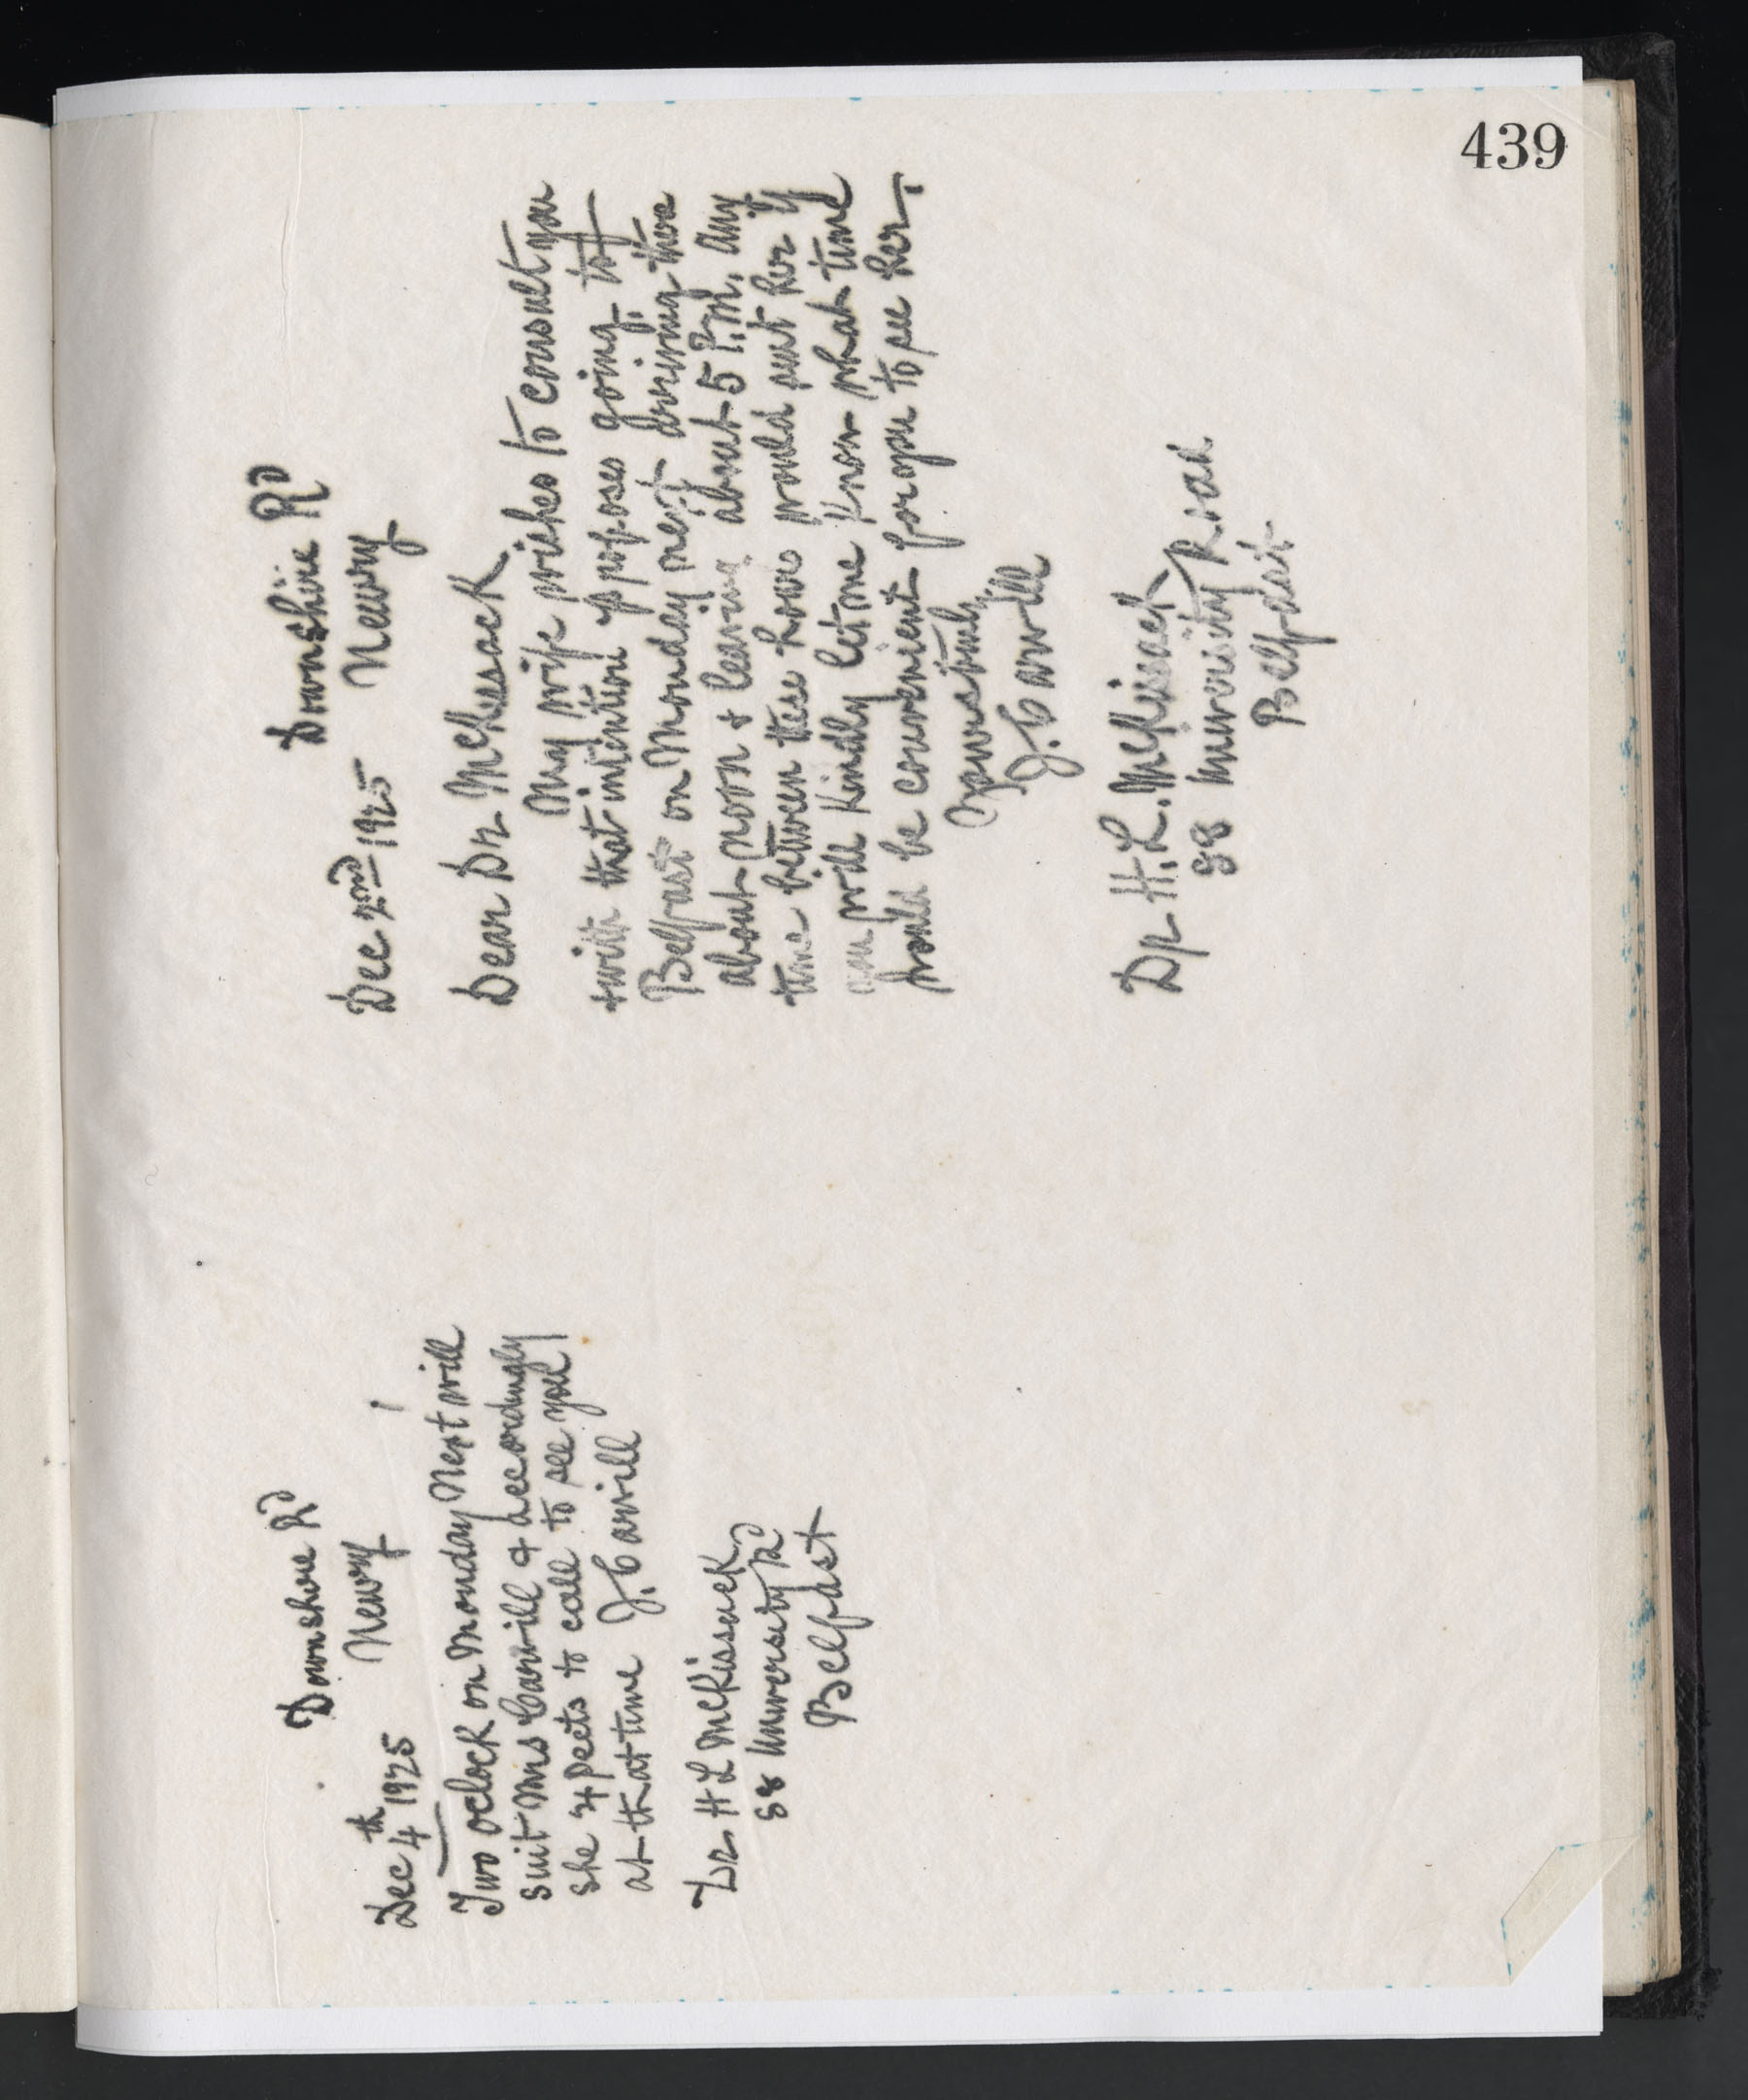 439
Downshire Rd
Newry
Dec 4th 1925
Two oclock on Monday Next will
suit Mrs Carvill & accordingly
she expects to call to see you
at that time J. Carvill
Dr H L McKissack
88 University Rd
Belfast
Downshire Rd
Newry
Dec 2nd 1925
Dear Dr McKissack
My wife wishes to consult you
& with that intention proposes going to
Belfast on Monday next arriving there
about noon & leaving about 5 P.M, any
time between these hours would suit her if
you will kindly let me know what time
would be convenient for you to see her
Yours truly
J. Carvill
Dr H. L. McKissack
88 University Road
Belfast